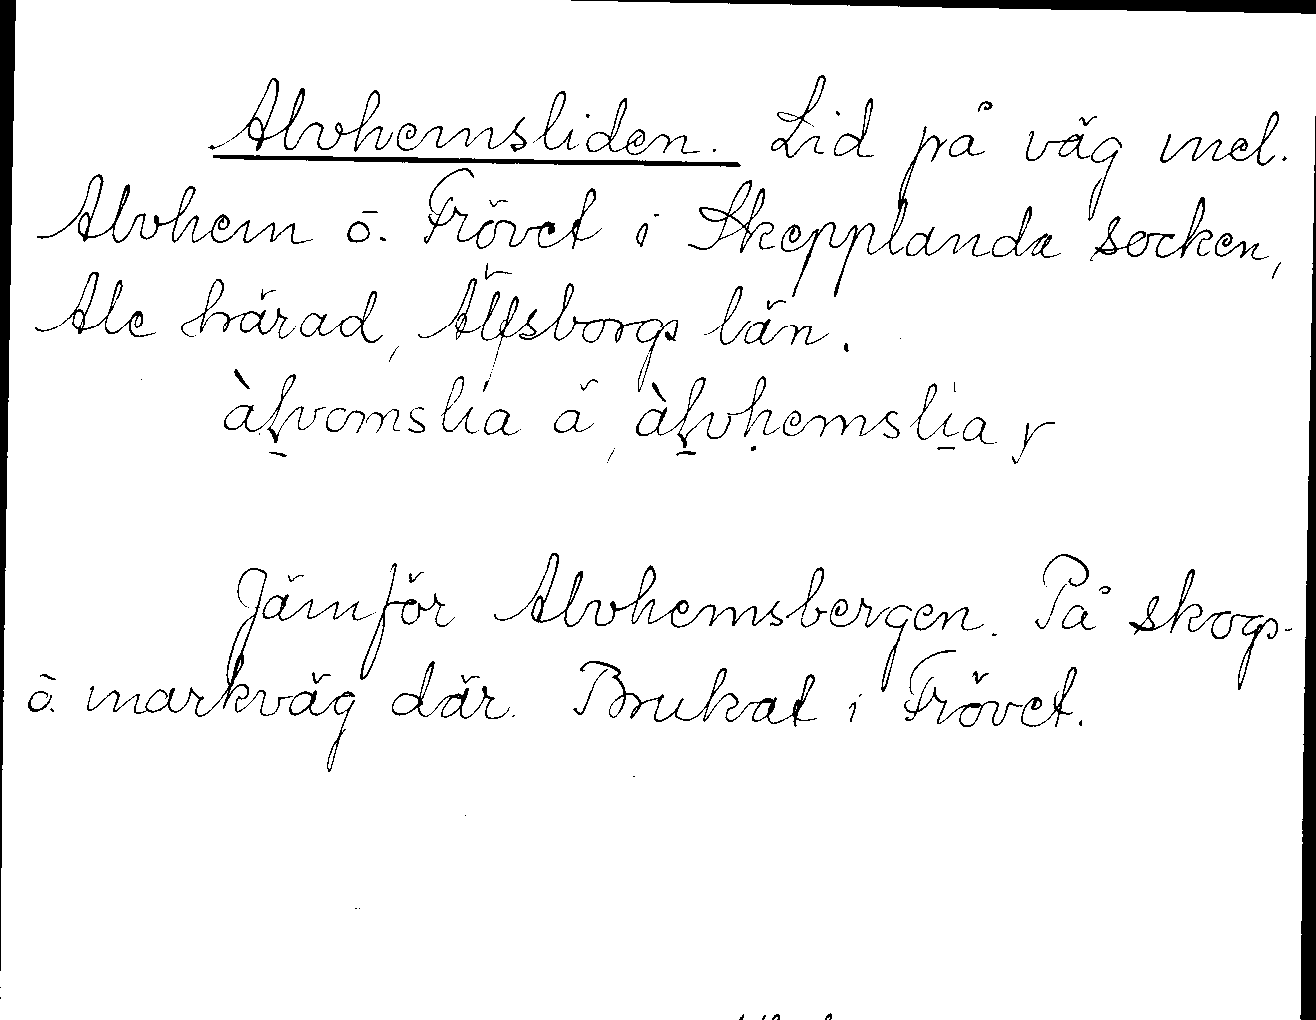 Alvhemsliden. Lid på väg mel.
Alvhem ö. Frövet i Skepplanda socken,
Ale härad, Älfsborgs län.
Jämför Alvhemsbergen. På skogs-
ö. markväg där. Brukat i Frövet.